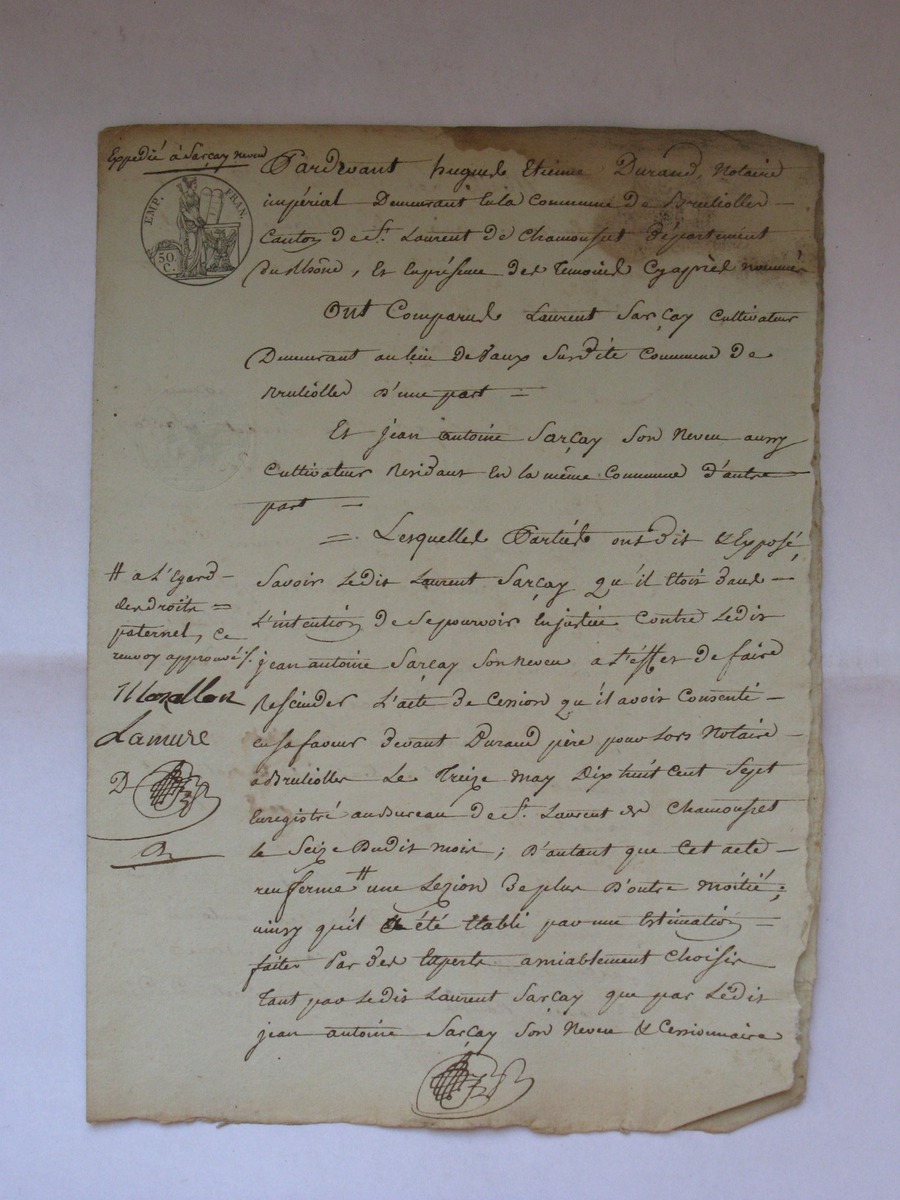 Expedié à Sarçay neveu
EMP. FRAN.
50 C.
Pardevant hugues Etienne Durand, Notaire
impérial Demeurant en la Commune de Brulioller
Canton de St. Laurent de Chamousset Département
du Rhône, Et En présence des Temoins Cy après nommés
Ont Comparus Laurent Sarçay Cultivateur
Demeurant au lieu de Vaux Susdite Commune de
Brulioller d'une part =
Et jean antoine Sarçay Son Neveu aussy
Cultivateur Residant En la même Commune d'autre
part —
= Lesquelles Parties ont dit & Exposé,
Savoir Ledit Laurent Sarçay qu'il Etoit dans
L'intention de Se pourvoir En justice Contre Ledit
jean antoine Sarçay Son neveu a l'effet de faire
Rescinder L'acte de Cession qu'il avoit Consenti
en sa faveur devant Durand père pour Lors Notaire
a Brulioller Le Treize may Dix huit Cent Sept
Enregistré au Bureau de St. Laurent de Chamousset
le Seize Dudit mois ; D'autant que Cet acte
renferme # une Lezion de plus D'outre moitié ;
ainsy qu'il a été Etabli par une Estimation
faites Par des Experts amiablement Choisis
Tant par Ledit Laurent Sarçay que par Ledit
jean antoine Sarçay Son Neveu & Cessionnaire
# a L'Egard
des droits =
paternel, Ce
renvoy approuvé /.
Lamure
D